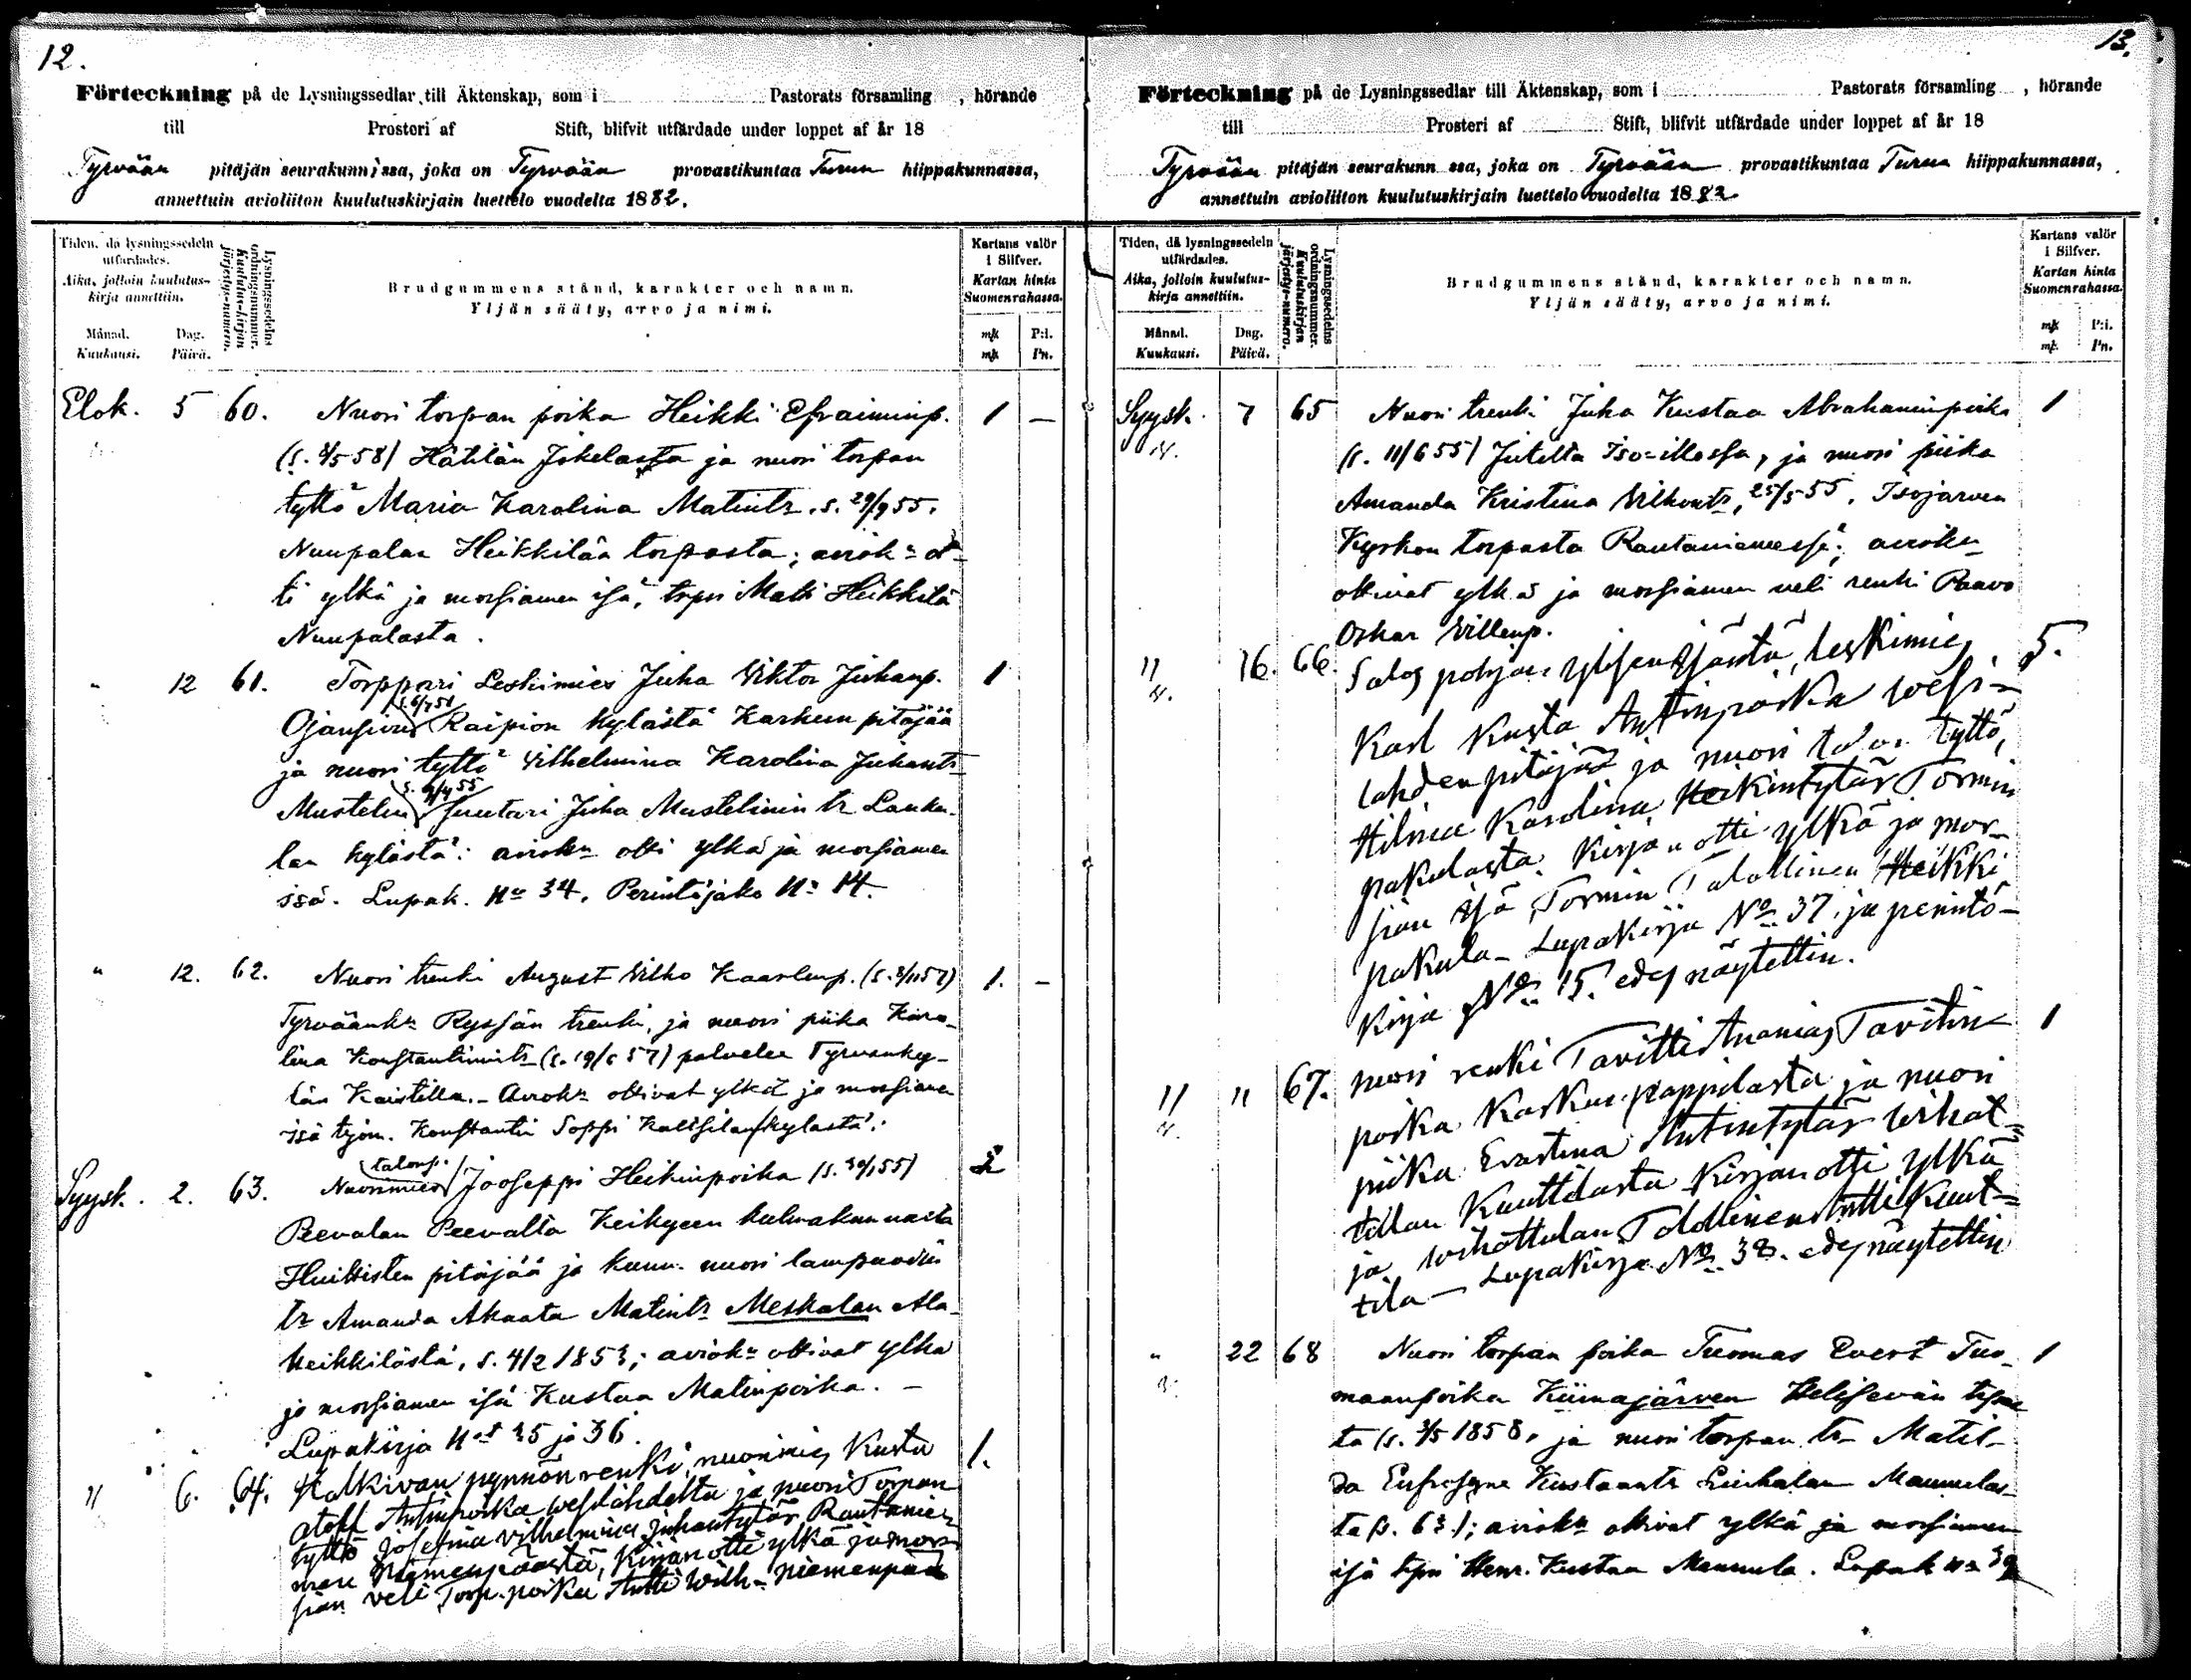 12.
Förteckning på de Lysningssedlar till Äktenskap, som i Pastorats församling , hörande
till Prosteri af Stift, blifvit utfärdade under loppet af år 18
Tyrvään pitäjän seurakunnissa, joka on Tyrvään provastikuntaa Turun hiippakunnassa,
annettuin avioliiton kuulutuskirjain luettelo vuodelta 1882.
Tiden, då lysningssedeln utfärdades.
Aika, jolloin kuulutus-kirja annettiin.
Månad. Dag.
Kuukausi. Päivä.
Lysningssedelns ordningsnummer.
Kuulutus-kirjan järjestys-numero.
Brudgummens stånd, karakter och namn.
Yljän sääty, arvo ja nimi.
Kartans valör i Silfver.
Kartan hinta Suomenrahassa.
mk P:i.
mk Pn.
Elok. 5 60. Nuori torpan poika Heikki Efraiminp. 1 —
Hätilän Jokelasta ja nuori torpan
tyttö Maria Karolina Matintr. s. 29/9 55.
Nuupalan Heikkilän torpasta; aviok: ot-
ti ylkä ja morsiamen isä, Matti Heikkilä
Nuupalasta.
" 12 61. Torppari Leskimies Juha Viktor Juhanp. 1
Ojansivu Raipion kylästä Karkun pitäjää
ja nuori tyttö Vilhelmina Karolina Juhantr
Mustelin Suutari Juha Mustelinin tr Lauku-
lan kylästä: aviok: otti ylkä ja morsiamen
isä. Lupak. No 34. Perintöjako No 14.
" 12. 62. Nuori trenki August Vilho Kaarlenp. 1. —
Ryssän trenki, ja nuori piika Karo-
lina Konstantinintr palvelee Tyrvänky-
län Kaistilla. - Aviok: ottivat ylkä ja morsiamen
isä työm. Konstantin Soppi kylästä.
Syysk. 2. 63. Nuorimies talonp. Jooseppi Heikinpoika (s. 30/1 55) 2
Peevalan Peevalta Keikyeen
Huittisten pitäjää ja kunn. nuori lampuodin
tr Amanda Akaata Matintr Meskalan Ala-
heikkilästä, s. 4/2 1853; aviok: ottivat ylkä
ja morsiamen isä Kustaa Matinpoika. —
Lupakirja 35 ja 36.
" 6. 64. Kalkivan pynnön renki, nuorimies Kusta 1.
Antinpoika Vesilahdelta ja nuori Torpan
tyttö Josefina Vilhelmina Juhantytär Rautanie-
men Niemenpäästä, Kirjan otti ylkä ja mor-
sian veli Torp. poika Antti Wilh. Niemenpää
13.
Förteckning på de Lysningssedlar till Äktenskap, som i Pastorats församling , hörande
till Prosteri af Stift, blifvit utfärdade under loppet af år 18
Tyrvään pitäjän seurakunn ssa, joka on Tyrvään provastikuntaa Turun hiippakunnassa,
annettuin avioliiton kuulutuskirjain luettelo vuodelta 1882
Tiden, då lysningssedeln utfärdades.
Aika, jolloin kuulutus-kirja annettiin.
Månad. Dag.
Kuukausi. Päivä.
Lysningssedelns ordningsnummer.
Kuulutuskirjan järjestys-numero.
Brudgummens stånd, karakter och namn.
Yljän sääty, arvo ja nimi.
Kartans valör i Silfver.
Kartan hinta Suomenrahassa.
mk P:i.
mk. Pn.
Syysk. 7 65 Nuori trenki Juha Kustaa Abrahaminpoika 1
(s. 11/6 55) ja nuori piika
Amanda Kristina Vilhontr, 25/5 55. Isojarven
Kyrkon torpasta Rautaniemessä; avioku
ottivat ylkä ja morsiamen veli renki Paavo
Oskar Villenp.
" 16. 66. pohjan leskimies 5.
Karl Kusta Antinpoika Wesi-
lahden pitäjää ja nuori talon tyttö,
Hilma Karolina Heikintytär Tormin
pakulasta. Kirjan otti ylkä ja mor-
sian isä, Tormin Talollinen Heikki
pakula - Lupakirja No 37. ja perintö-
kirja No 15. edes näytettiin.
" " 67. nuori renki Tavitti Ananias Tavitin 1
poika Karkun pappilasta ja nuori
piika Evastina Antintytär wihat-
tilan Kuuttilasta Kirjan otti ylkä
ja wihattulan Talollinen Antti Kuut-
tila — Lupakirja No 38. edes näytettiin
" 22 68 Nuori torpan poika Tuomas Evert Tuo- 1
maanpoika Kiimajärven
ta (s. 3/5 1858, ja nuori torpan tr Matil-
da Eufrosyne Kustaantr Liuhalan Mannulas-
ta (s. 63); aviok: ottivat ylkä ja morsiamen
isä Henr. Kustaa Mannula. Lupak No 39